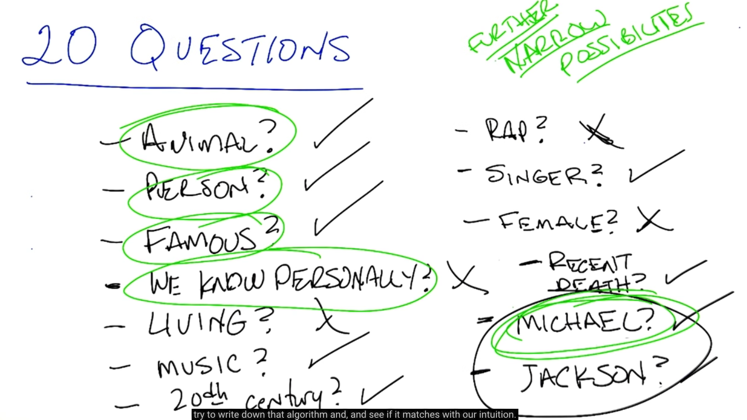 20 QUESTIONS
FURTHER
NARROW
POSSIBILITES
- ANIMAL?
- PERSON?
- FAMOUS?
- WE KNOW PERSONALLY?
- LIVING?
- MUSIC?
- 20th CENTURY?
- RAP?
- SINGER?
- FEMALE?
- RECENT
DEATH?
- MICHAEL?
- JACKSON?
try to write down that algorithm and, and see if it matches with our intuition.